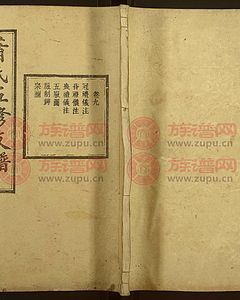 卷九
冠禮儀注
昏禮儀注
喪禮儀注
五服圖
服制辨
宗圖
氏五修支譜
族谱网
www.zupu.cn
族谱网
www.zupu.cn
族谱网
www.zupu.cn
族谱网
www.zupu.cn